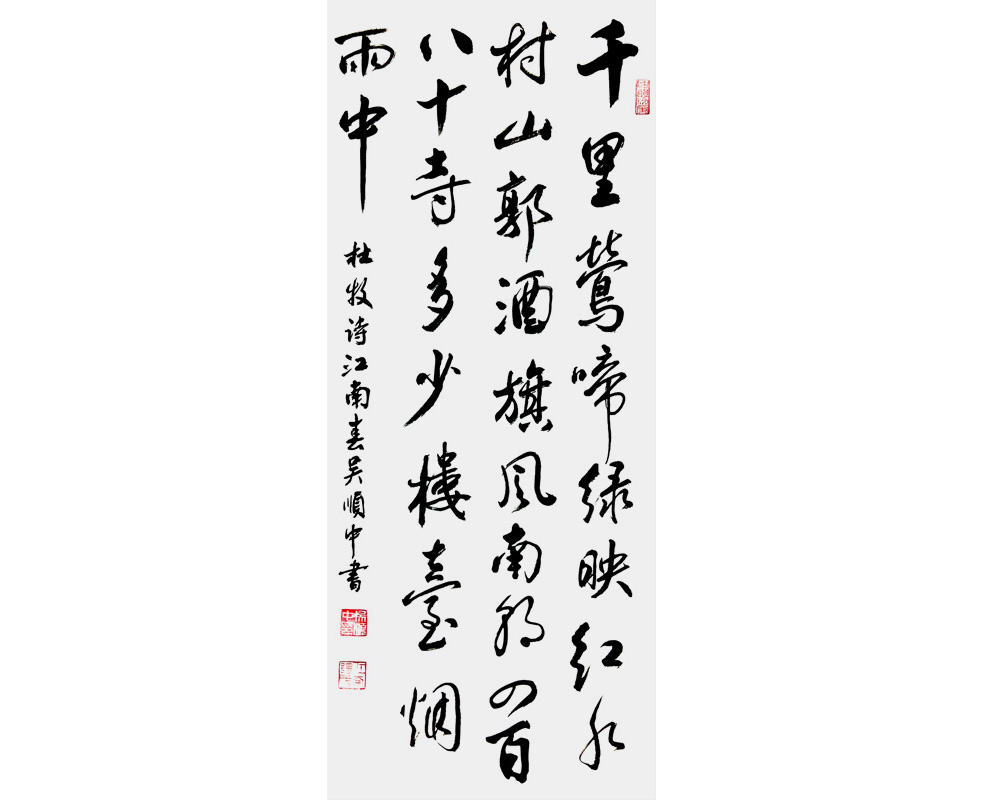 千里莺啼绿映红水
村山郭酒旗风南朝四百
八十寺多少楼臺烟
雨中
杜牧诗江南春吴順中書